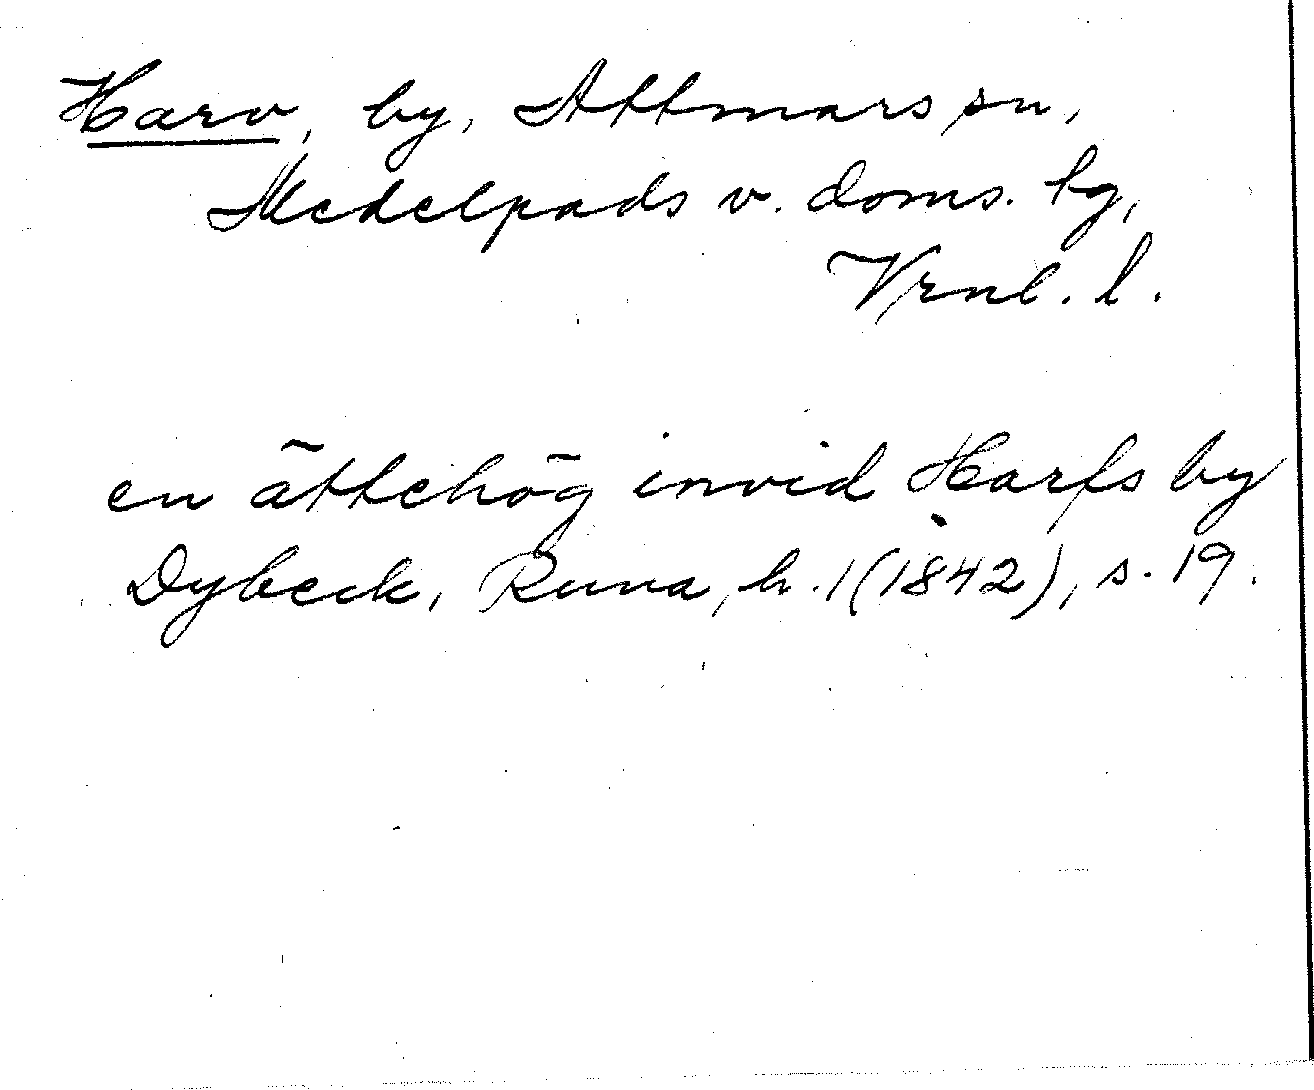 Harv, by, Attmars sn,
Medelpads v. doms. tg,
Vrnl. l.
en ättehög invid Harfs by
Dybeck, Runa, h. 1 (1842), s. 19.